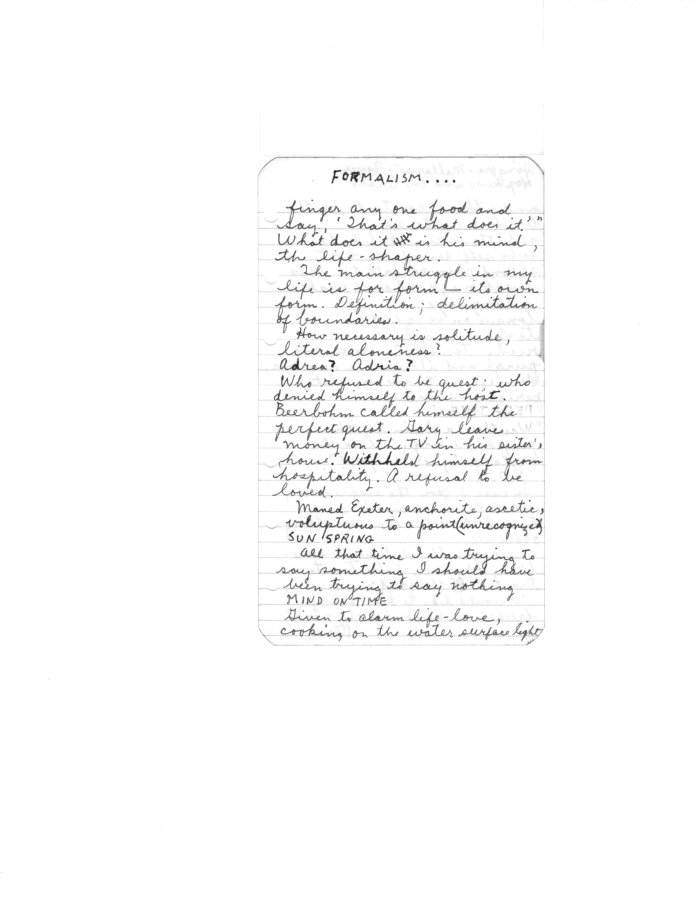 FORMALISM....
finger any one food and
say, 'That's what does it.'"
What does it is his mind,
the life-shaper.
The main struggle in my
life is for form — its own
form. Definition; delimitation
of boundaries.
How necessary is solitude,
literal aloneness?
Adrea? Adria?
Who refused to be guest; who
denied himself to the host.
Beerbohm called himself the
perfect guest. Gary leave
money on the TV in his sister's
house. Withheld himself from
hospitality. A refusal to be
loved.
Maned Exeter, anchorite, ascetic,
voluptuous to a point (unrecognized)
SUN SPRING
All that time I was trying to
say something I should have
been trying to say nothing
MIND ON TIME
Given to alarm life-love,
cooking on the water surface light